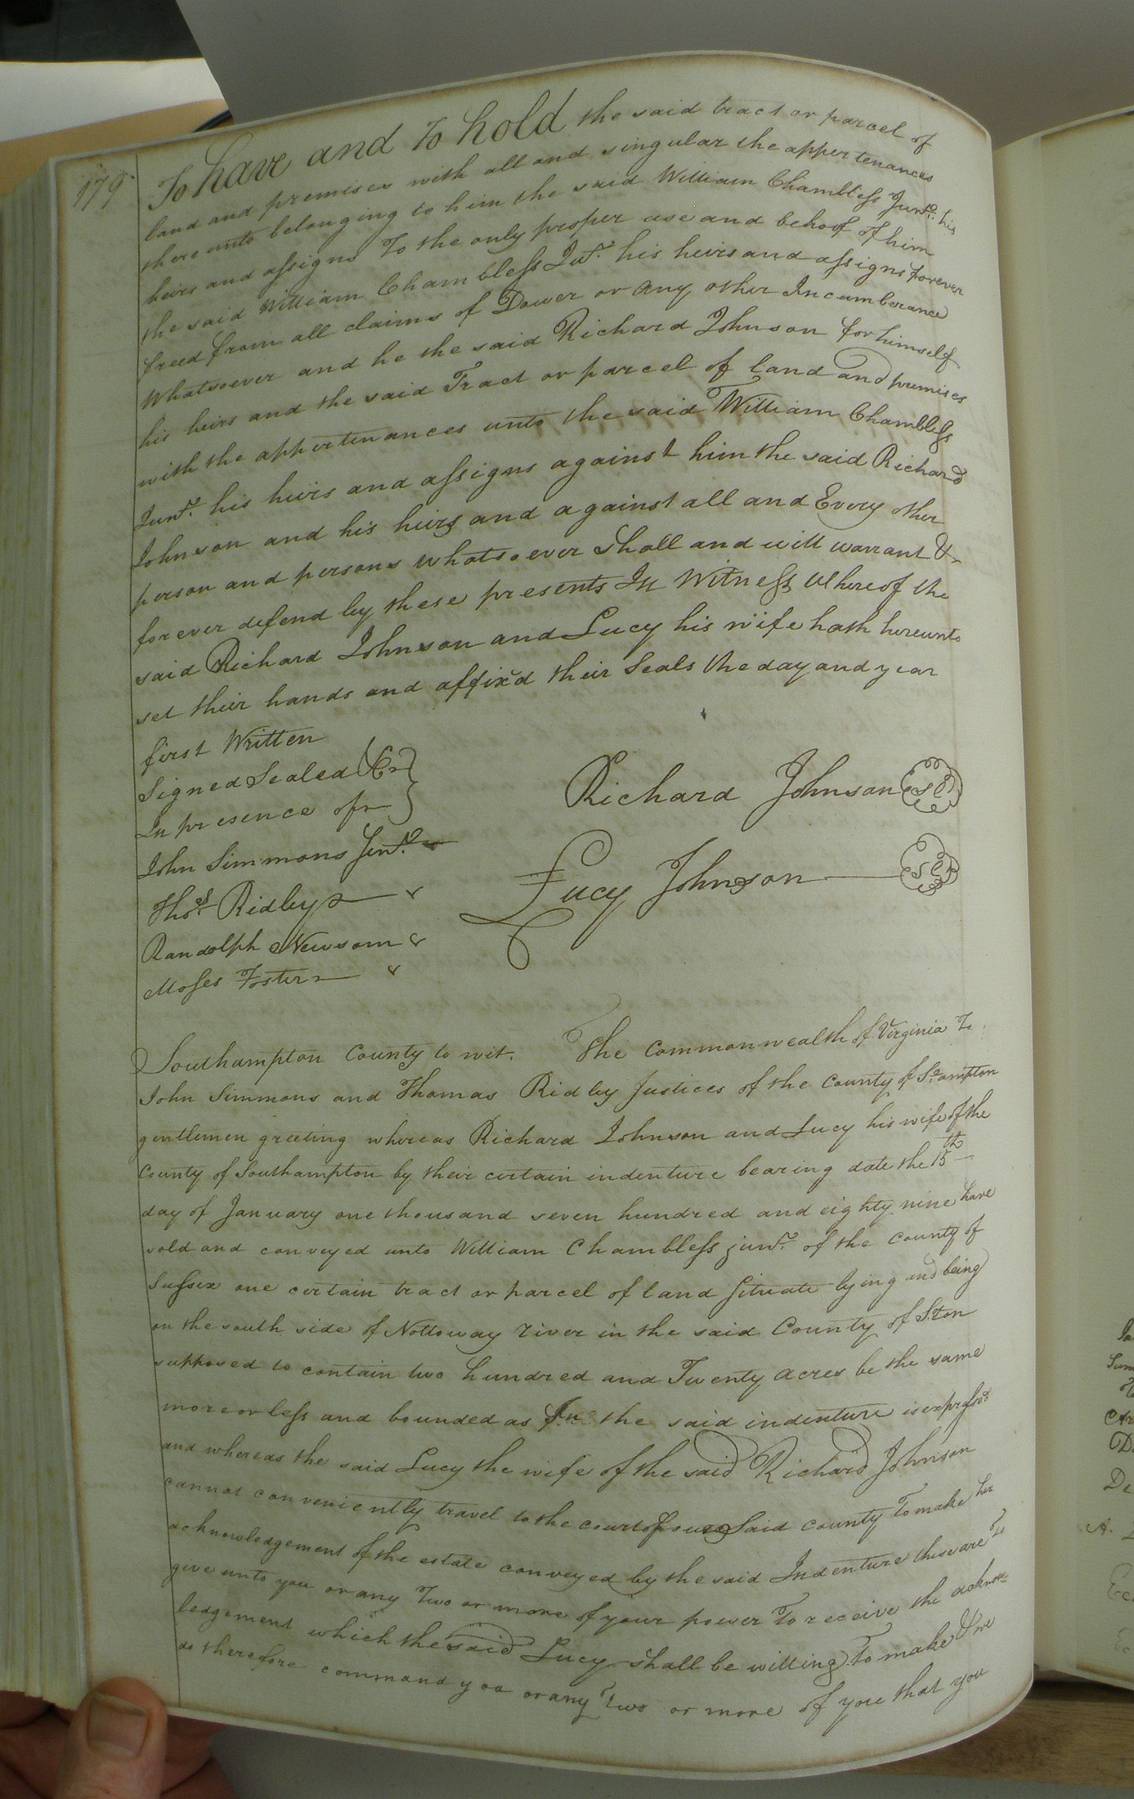 179
To have and To hold the said tract or parcel of
land and premises with all and singular the appertenances
there unto belonging to him the said William Chambless Junr. his
heirs and assigns To the only proper use and behoof of him
the said William Chambless Junr. his heirs and assigns forever
freed from all claims of Dower or any other Incumberance
Whatsoever and he the said Richard Johnson for himself
his heirs and the said Tract or parcel of land and premises
with the appertenances unto the said William Chambless
Junr. his heirs and assigns against him the said Richard
Johnson and his heirs and against all and Every other
person and persons whatsoever shall and will warrant &
forever defend by these presents In Witness Whereof the
said Richard Johnson and Lucy his wife hath hereunto
set their hands and affix'd their Seals the day and year
first Written
Signed Sealed &c
In presence of
Richard Johnson
John Simmons Junr.
Lucy Johnson
Thos. Ridley
Randolph Newsom
Moses Foster
Southampton County to wit. The Commonwealth of Virginia To
John Simmons and Thomas Ridley Justices of the County of So.ampton
gentlemen greeting whereas Richard Johnson and Lucy his wife of the
County of Southampton by their certain indenture bearing date the 15th
day of January one thousand seven hundred and eighty nine have
sold and conveyed unto William Chambless junr. of the County of
Sussex one certain tract or parcel of land situate lying and being
on the south side of Nottoway river in the said County of S.ton
supposed to contain two hundred and Twenty acres be the same
more or less and bounded as In the said indenture is express'd
and whereas the said Lucy the wife of the said Richard Johnson
cannot conveniently travel to the court of our Said county To make her
acknowledgement of the estate conveyed by the said Indenture these are To
give unto you or any Two or more of your power To receive the acknow-
ledgement which the said Lucy shall be willing To make & we
do therefore command you or any Two or more of you that you